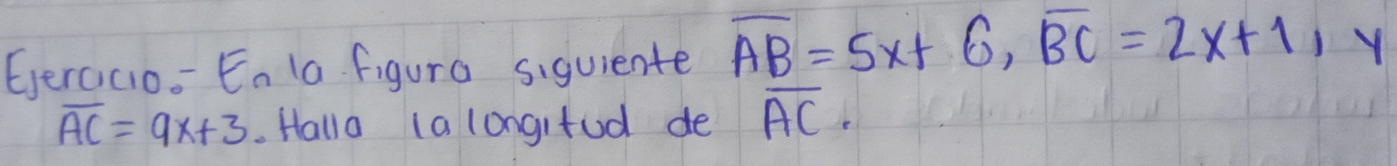 Ejercicio.- En la figura siguiente AB = 5x+ 6, BC = 2x+1, y
AC = 9x+3. Halla la longitud de AC.